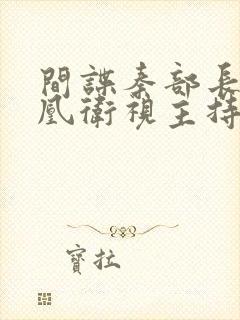 間諜秦部長
凰衛視主持
寶拉